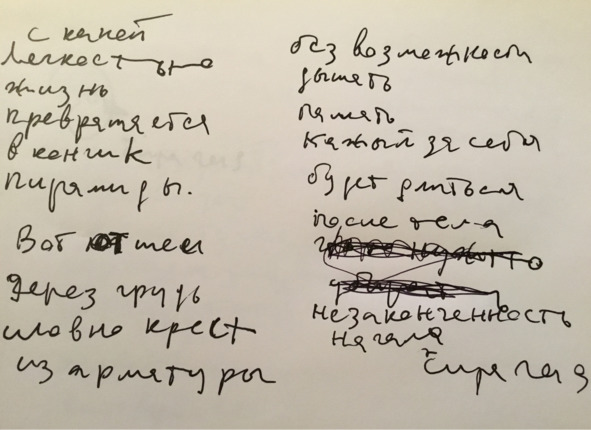 с какой
легкостью
жизнь
превращается
в кончик
пирамиды.
Вот от шеи
через грудь
словно крест
из арматуры
без возможности
дышать
память
кажый за себя
будет длиться
после тела
незаконченность
начала